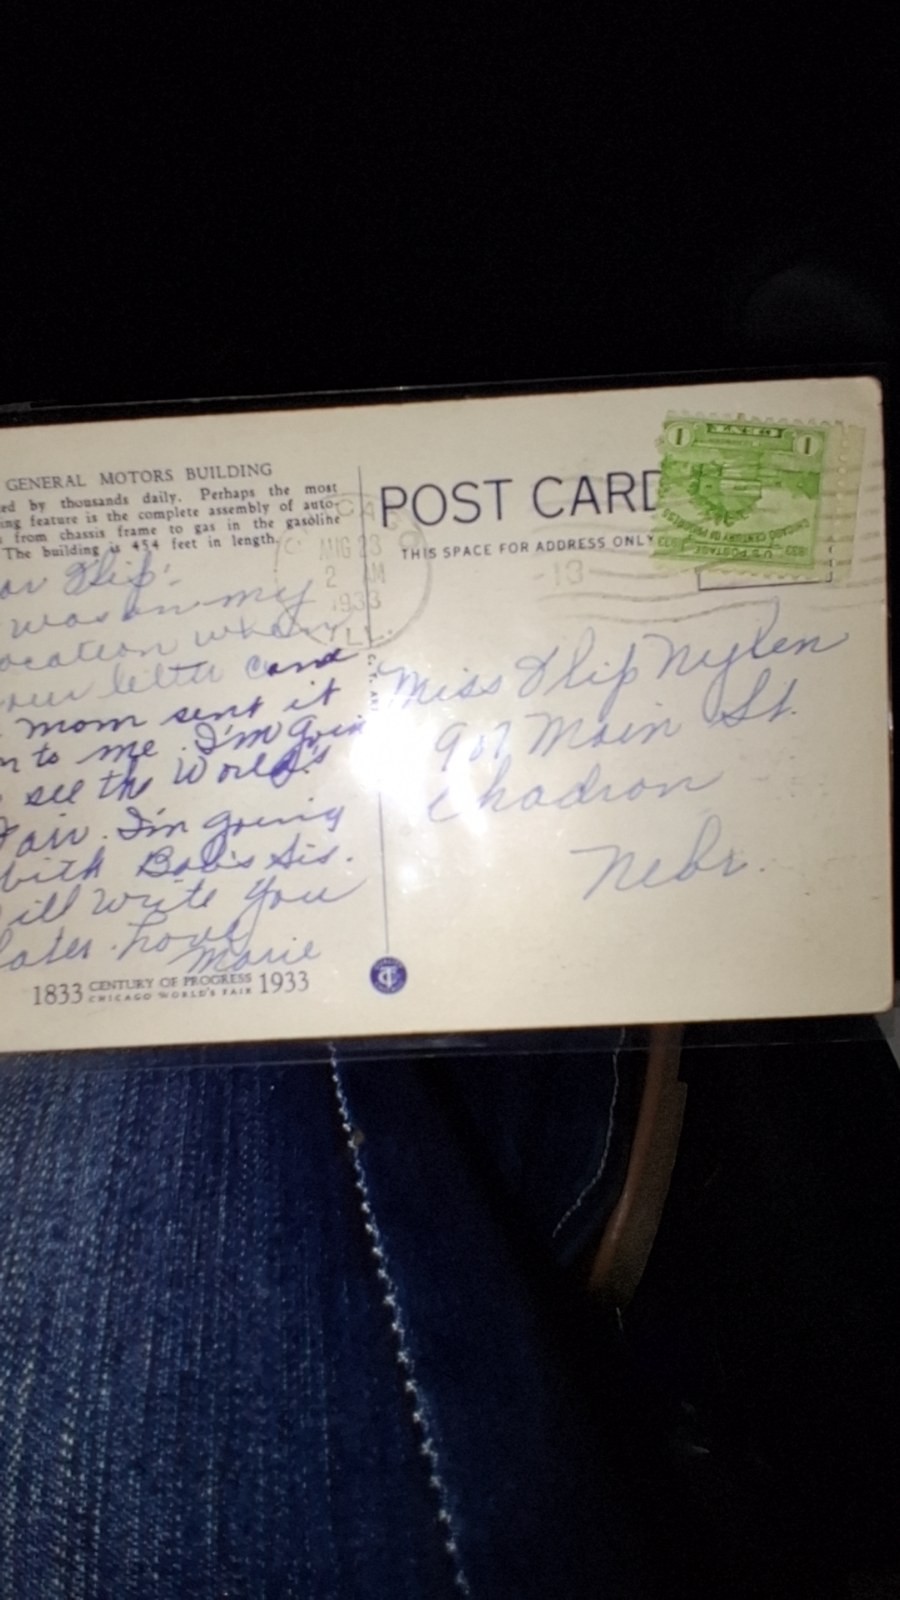 GENERAL MOTORS BUILDING
ed by thousands daily. Perhaps the most
ing feature is the complete assembly of auto-
from chassis frame to gas in the gasoline
The building is 454 feet in length.
ar Flip:
was on my
ocation when
our letter came
mom sent it
n to me. I'm goin
see the World's
Fair. I'm going
with Bob's Sis.
ill write you
later. Love
Marie
1833 CENTURY OF PROGRESS 1933
CHICAGO WORLD'S FAIR
C. T. ART
POST CARD
THIS SPACE FOR ADDRESS ONLY
CHICAGO
AUG 23
2 AM
1933
ILL.
13
1 CENT 1
CHICAGO CENTURY OF PROGRESS
1833 U.S. POSTAGE 1933
Miss Flip Nylen
907 Main St.
Chadron
Nebr.